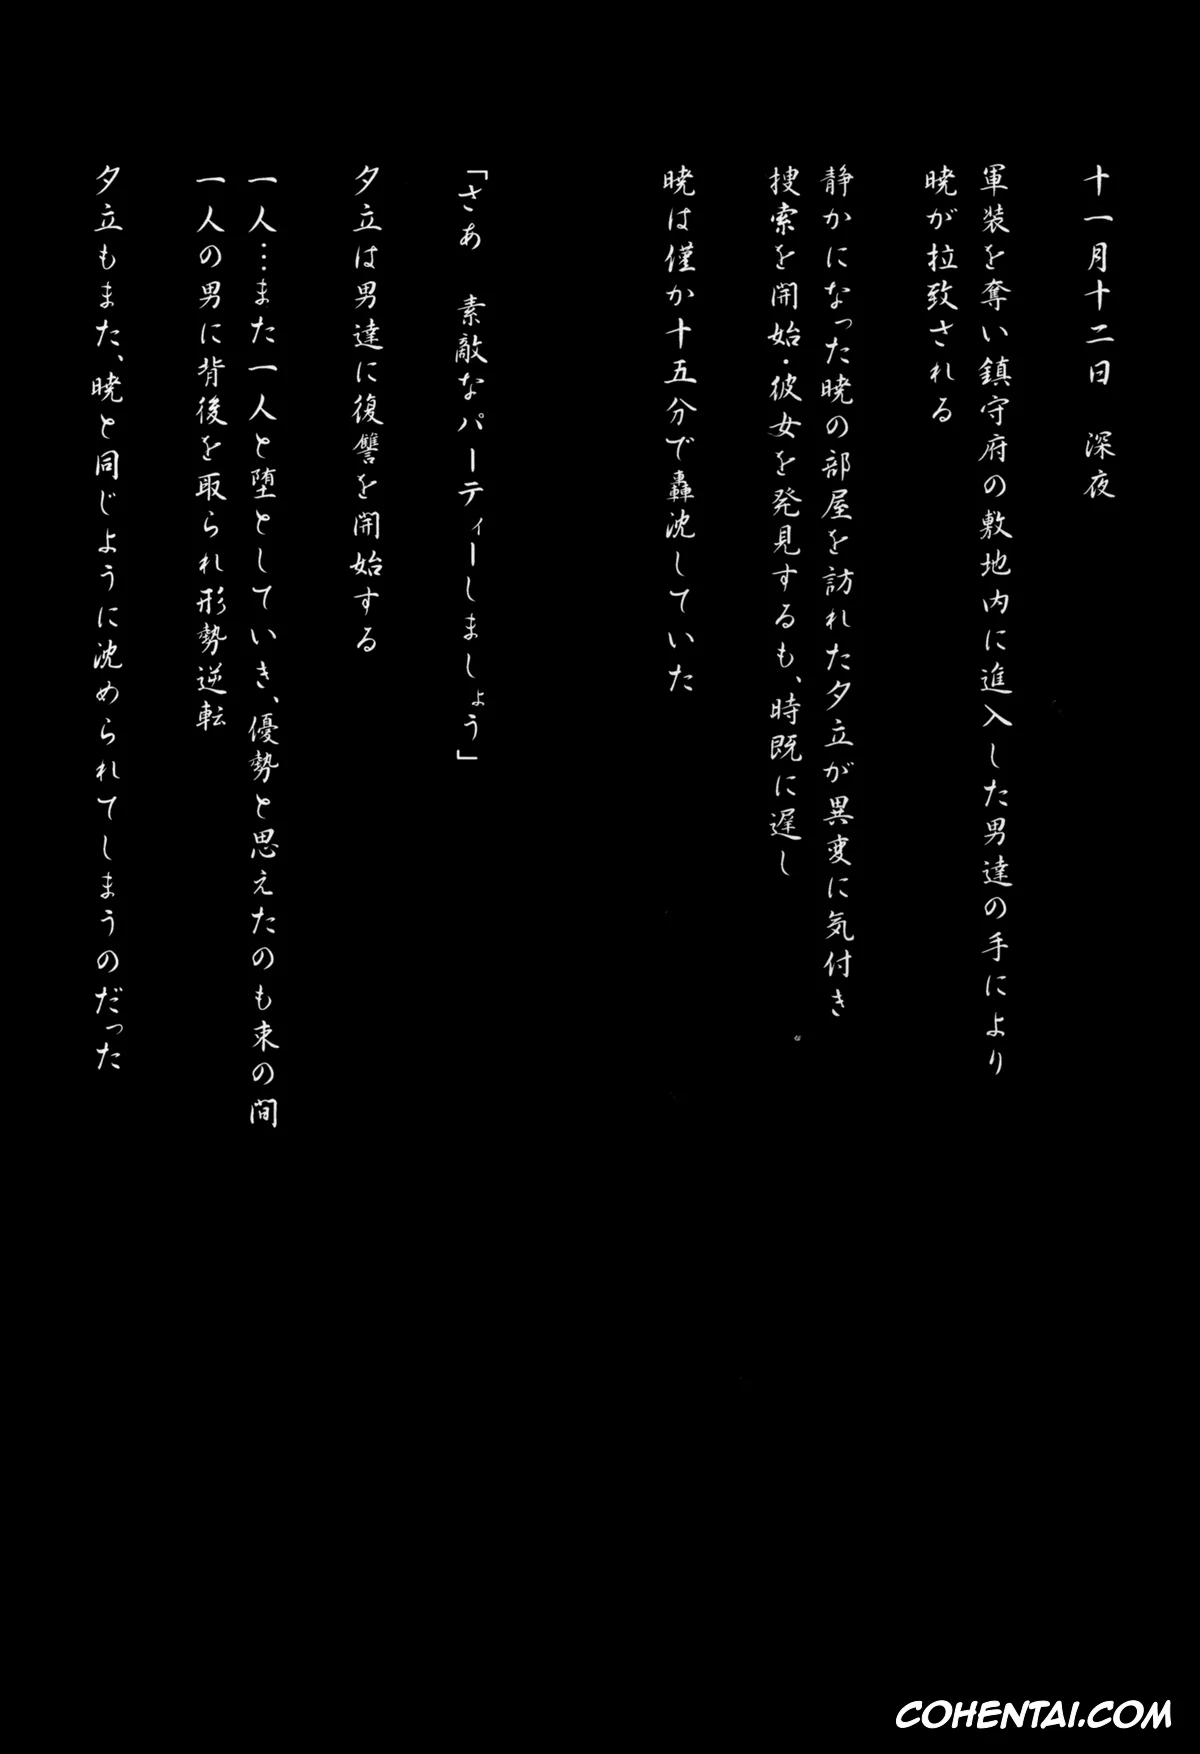 十一月十二日　深夜
軍装を奪い鎮守府の敷地内に進入した男達の手により
暁が拉致される
静かになった暁の部屋を訪れた夕立が異変に気付き
捜索を開始・彼女を発見するも、時既に遅し
暁は僅か十五分で轟沈していた
「さあ　素敵なパーティーしましょう」
夕立は男達に復讐を開始する
一人…また一人と堕としていき、優勢と思えたのも束の間
一人の男に背後を取られ形勢逆転
夕立もまた、暁と同じように沈められてしまうのだった
COHENTAI.COM